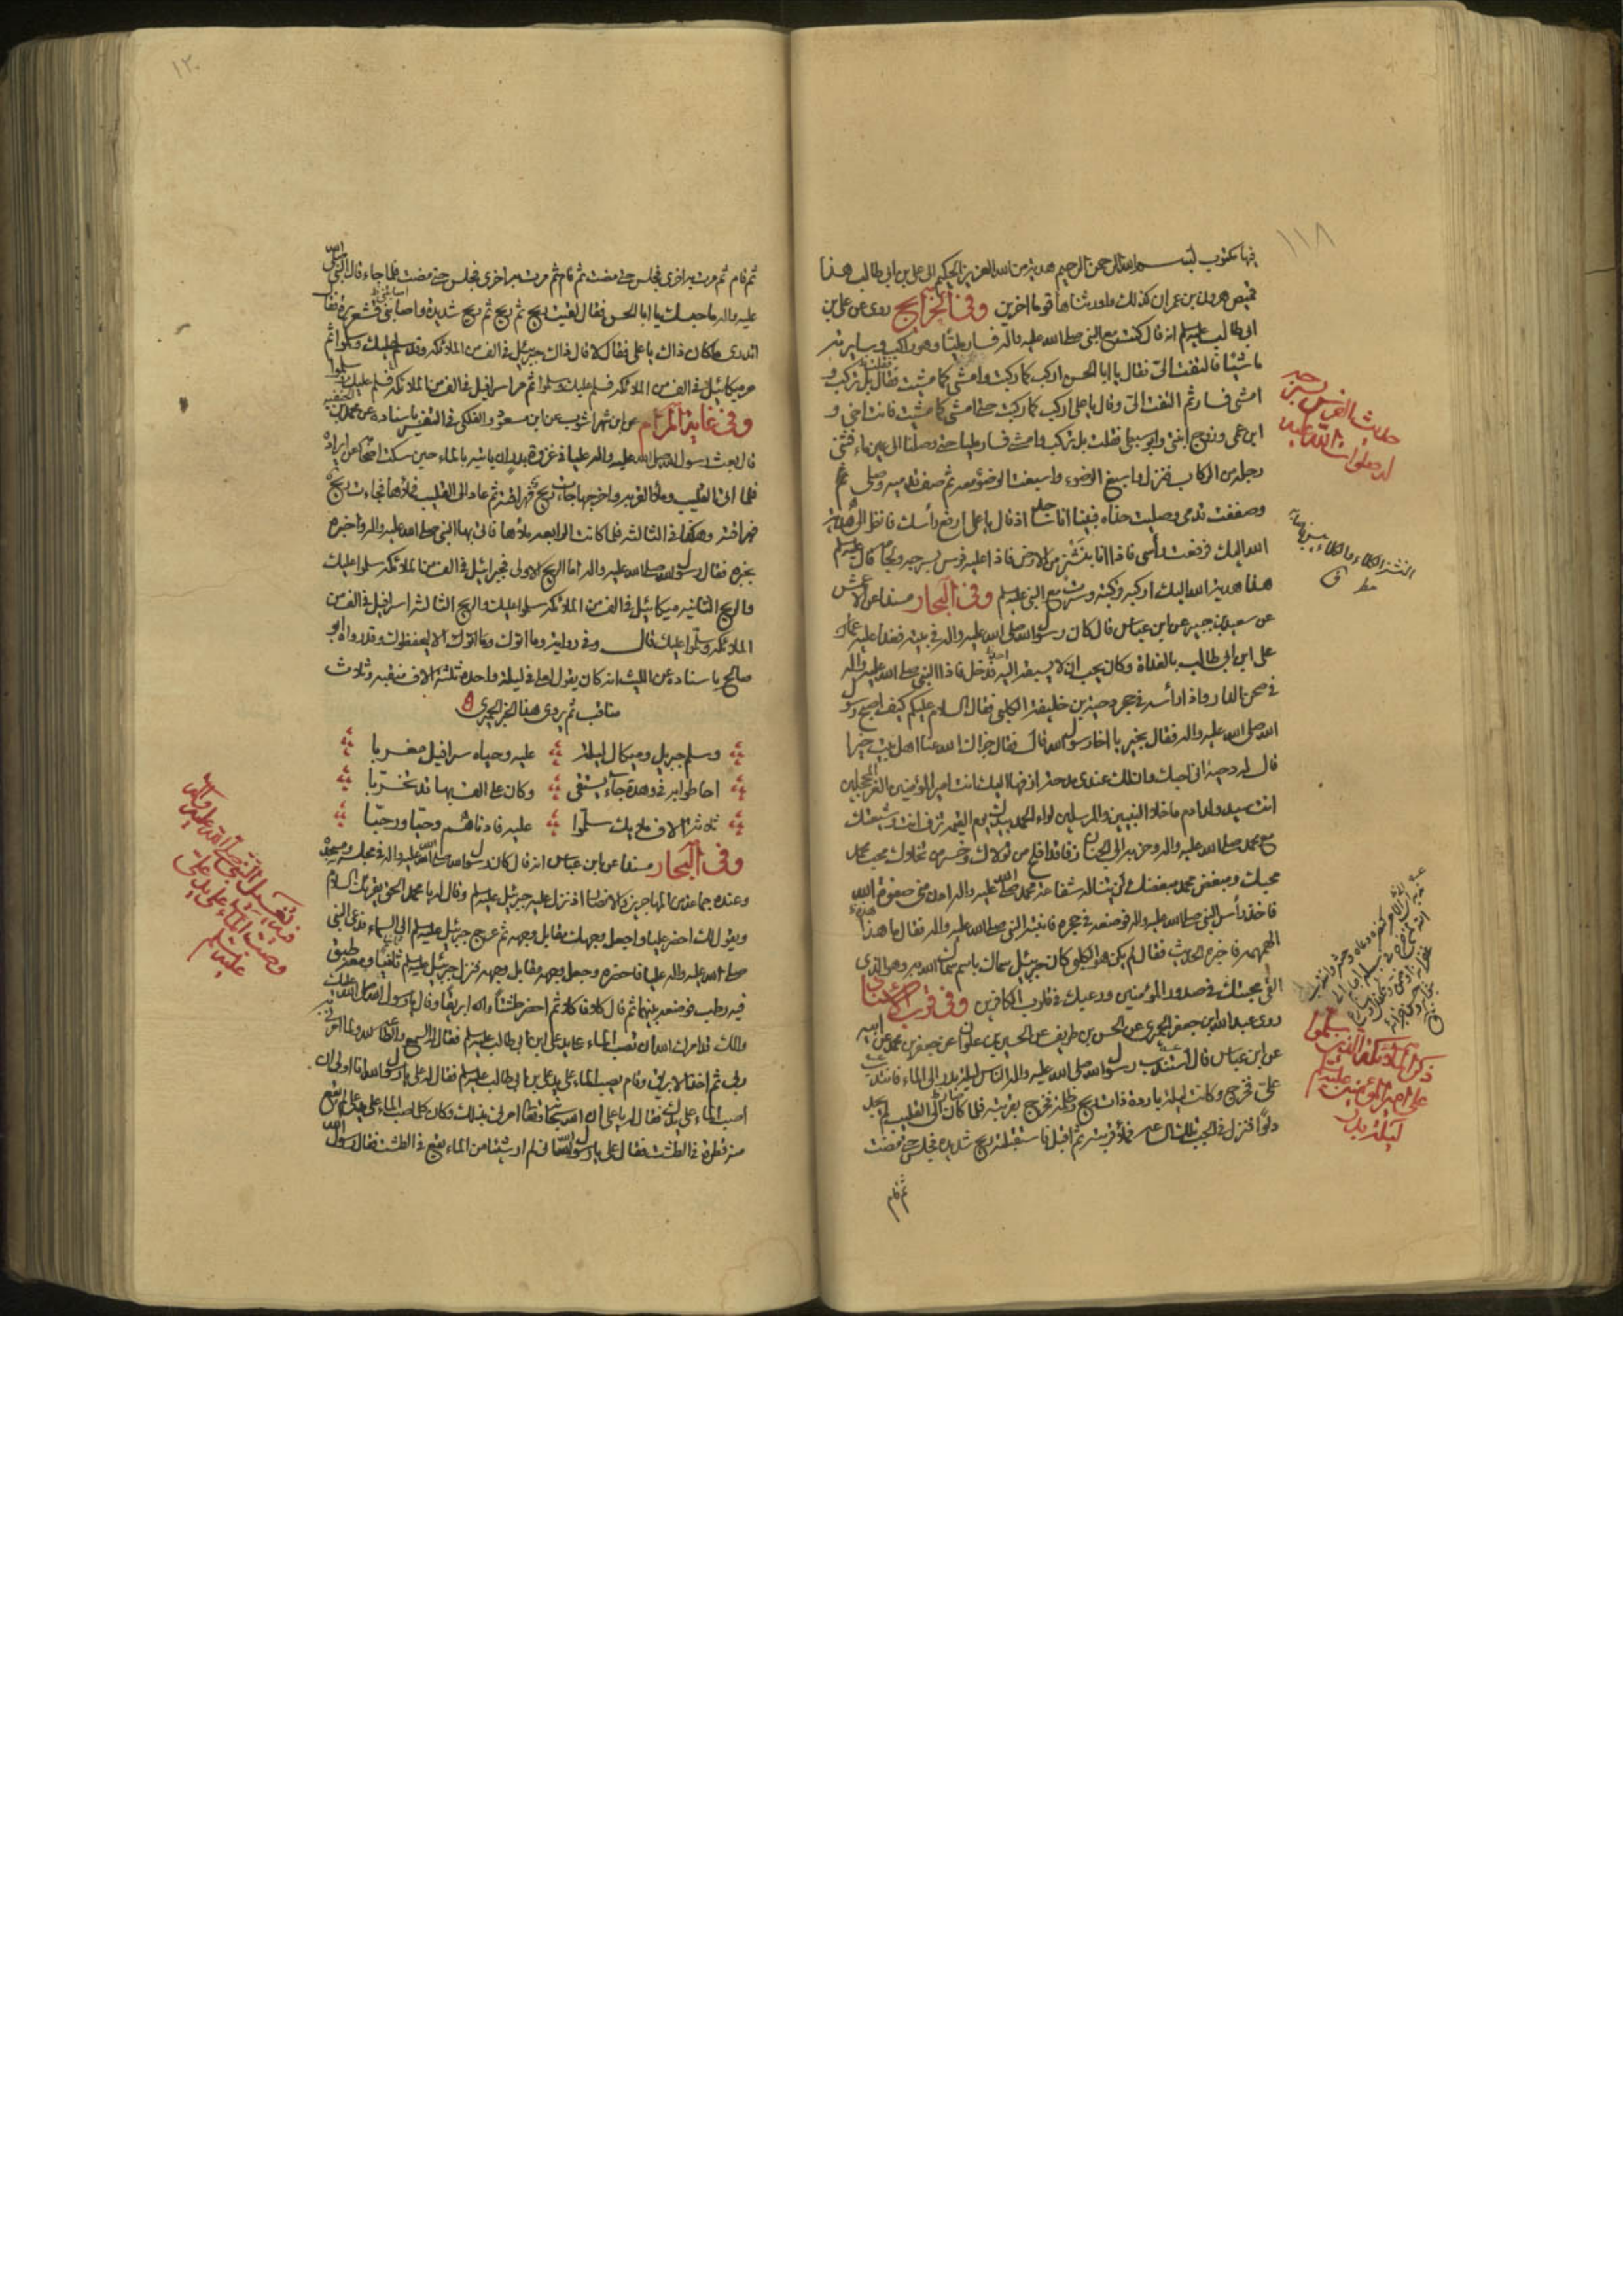 ١١٨
فيها مكتوب بسم الله الرحمن الرحيم هدية من الله العزيز الحكيم الى علي بن ابي طالب هذا
قميص هرون بن عمران كذلك واورثناها قوما اخرين وفي الخرايج روى عن علي بن
ابي طالب عليه السلم انه قال كنت مع النبي صلى الله عليه واله فسار مليا وهو راكب وسايرته
ماشيا فالتفت الي فقال يا ابا الحسن اركب كما ركبت وامشي كما مشيت فقلت بل تركب و
امشي فسار ثم التفت الي وقال يا علي اركب كما ركبت حتى امشي كما مشيت فانت اخي و
ابن عمي وزوج ابنتي وابو سبطي فقلت بل تركب وامشي فسار مليا حتى وصلنا الى عين ماء فثنى
رجله من الركاب فنزل واسبغ الوضوء واسبغت الوضوء معه ثم صف قدميه وصلى ثم
وصففت قدمي وصليت حذاه فبينا انا ساجد اذ قال يا علي ارفع رأسك فانظر الى هدية
الله اليك فرفعت رأسي فاذا انا بنشز من الارض فاذا عليه فرس بسرجه ولجامه قال عليه السلم
هذا هدية الله اليك اركبه فركبته وسرت مع النبي عليه السلم وفي البحار مسندا عن الاعمش
عن سعيد بن جبير عن ابن عباس قال كان رسول الله صلى الله عليه واله في بيته فغدا عليه
علي ابن ابي طالب بالغداة وكان يحب ان لا يسبقه اليه احد فدخل فاذا النبي صلى الله عليه واله
في صحن الدار واذا رأسه في حجر دحية بن خليفة الكلبي فقال السلام عليكم كيف اصبح رسول
الله صلى الله عليه واله فقال بخير يا اخا رسول الله قال فقال جزاك الله عنا اهل بيت خيرا
قال له دحية اني احبك وان لك عندي مدحة ازفها اليك انت امير المؤمنين وقائد الغر المحجلين
انت سيد ولد ادم ما خلا النبيين والمرسلين لواء الحمد بيدك يوم القيمة تزف انت وشيعتك
مع محمد صلى الله عليه واله وحزبه الى الجنان زفا قد افلح من تولاك وخسر من تخلاك محب محمد
محبك ومبغض محمد مبغضك لن يناله شفاعة محمد صلى الله عليه واله ادن مني صفوة الله
فاخذ رأس النبي صلى الله عليه واله فوضعه في حجره فانتبه النبي صلى الله عليه واله فقال ما هذه
الهمهمة فاخبره الحديث فقال لم يكن هو الكلبي كان جبرئيل سماك باسم سماك الله به وهو الذي
القى محبتك في صدور المؤمنين ورهبتك في قلوب الكافرين وفي قرب الاسناد
روى عبد الله بن جعفر الحميري عن الحسن بن طريف عن الحسين بن علوان عن جعفر بن محمد عن ابيه
عن ابن عباس قال استندب رسول الله صلى الله عليه واله الناس ليلة بدر الى الماء فانتدب
علي فخرج وكانت ليلة باردة ذات ريح وظلمة فخرج بقربته فلما كان الى القليب لم يجد
دلوا فنزل في الجب تلك الساعة فملأ قربته ثم اقبل فاستقبلته ريح شديدة فجلس حتى مضت
ثم قام
حديث الفرس بسرجه
النشز المكان المرتفع
ذكر الملائكة الذين سلموا
على امير المؤمنين عليه السلم
ليلة بدر
١٢٠
ثم قام ثم مرت به اخرى فجلس حتى مضت ثم قام ثم مرت به اخرى فجلس حتى مضت فلما جاء قال النبي صلى الله
عليه واله ما حبسك يا ابا الحسن فقال لقيت ريح ثم ريح ثم ريح شديدة واصابتني قشعريرة فقال
اتدري ما كان ذاك يا علي فقال لا قال ذاك جبرئيل في الف من الملائكة وقد سلم عليك وسلموا ثم
مر ميكائيل في الف من الملائكة فسلم عليك وسلموا ثم مر اسرافيل في الف من الملائكة فسلم عليك وسلموا
وفي غاية المرام عن ابن شهراشوب عن ابن مسعود والفلكي في التفسير باسناده عن محمد بن الحنفية
قال بعث رسول الله صلى الله عليه واله عليا في غزوة بدر ان ياتيه بالماء حين سكت اصحابه عن ايراده
فلما اتى القليب وملأ القربة واخرجها جاءت ريح فهراقته ثم عاد الى القليب فملأها فجاءت ريح
فهراقته وهكذا في الثالثة فلما كانت الرابعة ملأها فاتى بها النبي صلى الله عليه واله واخبره
بخبره فقال رسول الله صلى الله عليه واله اما الريح الاولى فجبرائيل في الف من الملائكة سلموا عليك
والريح الثانية ميكائيل في الف من الملائكة سلموا عليك والريح الثالثة اسرافيل في الف من
الملائكة وسلموا عليك قال وفي رواية وما اتوك الا ليحفظوك وقد رواه ابو
صالح باسناده عن الليث انه كان يقول لعلي في ليلة واحدة ثلثة الاف منقبة وثلاث
مناقب ثم يروي هذا الخبر الحميري
وسلم جبريل وميكال ليلة عليه وحياه سرافيل معربا
احاطوا به في وهدة جاء يستقي وكان على الف بها قد تحزبا
ثلاثة الاف ملايك سلموا عليه فادناهم وحيا ورحبا
وفي البحار مسندا عن ابن عباس انه قال كان رسول الله صلى الله عليه واله في مجلسه ومسجده
وعنده جماعة من المهاجرين والانصار اذ نزل عليه جبرئيل عليه السلم وقال له يا محمد الحق يقرئك السلام
ويقول لك احضر عليا واجعل وجهك مقابل وجهه ثم عرج جبرئيل عليه السلم الى السماء فدعى النبي
صلى الله عليه واله عليا فاحضره وجعل وجهه مقابل وجهه فنزل جبرئيل عليه السلم ثانيا ومعه طبق
فيه رطب فوضعه بينهما ثم قال كلا فاكلا ثم احضر طشتا وابريقا وقال يا رسول الله صلى الله عليك
والك قد امرك الله ان تصب الماء على يد علي ابن ابي طالب عليه السلم فقال السمع والطاعة لله ولما امرني به
ربي ثم اخذ الابريق وقام يصب الماء على يد علي بن ابي طالب عليه السلم فقال له علي يا رسول الله انا اولى ان
اصب الماء على يدك فقال له يا علي ان الله سبحانه وتعالى امرني بذلك وكان كلما صب الماء على يد علي لم يقع
منه قطرة في الطشت فقال علي يا رسول الله اني لم ار شيئا من الماء يقع في الطشت فقال رسول الله